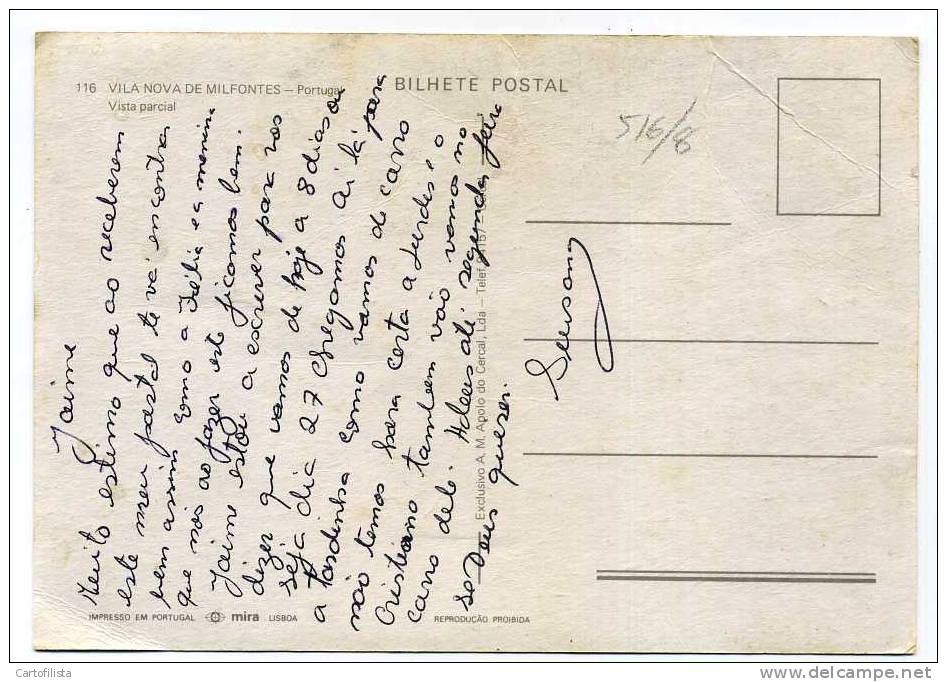 116 VILA NOVA DE MILFONTES – Portugal
Vista parcial
BILHETE POSTAL
516/8
Jaime
Muito estimo que ao receberem
este meu postal te vá encontrar
bem assim como a Idélia e a menina
que nós ao fazer este ficamos bem.
Jaime estou a escrever para vos
dizer que vamos de hoje a 8 dias ou
seja dia 27 chegamos ai lá para
a tardinha como vamos de carro
não temos hora certa a Lurdes e o
Cristiano tambem vão vamos no
carro dele. Adeus até segunda feira
se Deus quezer.
Exclusivo A. M. Apolo do Cercal, Lda – Telef.
IMPRESSO EM PORTUGAL mira LISBOA
REPRODUÇÃO PROIBIDA
Cartofilista
www.delcampe.net